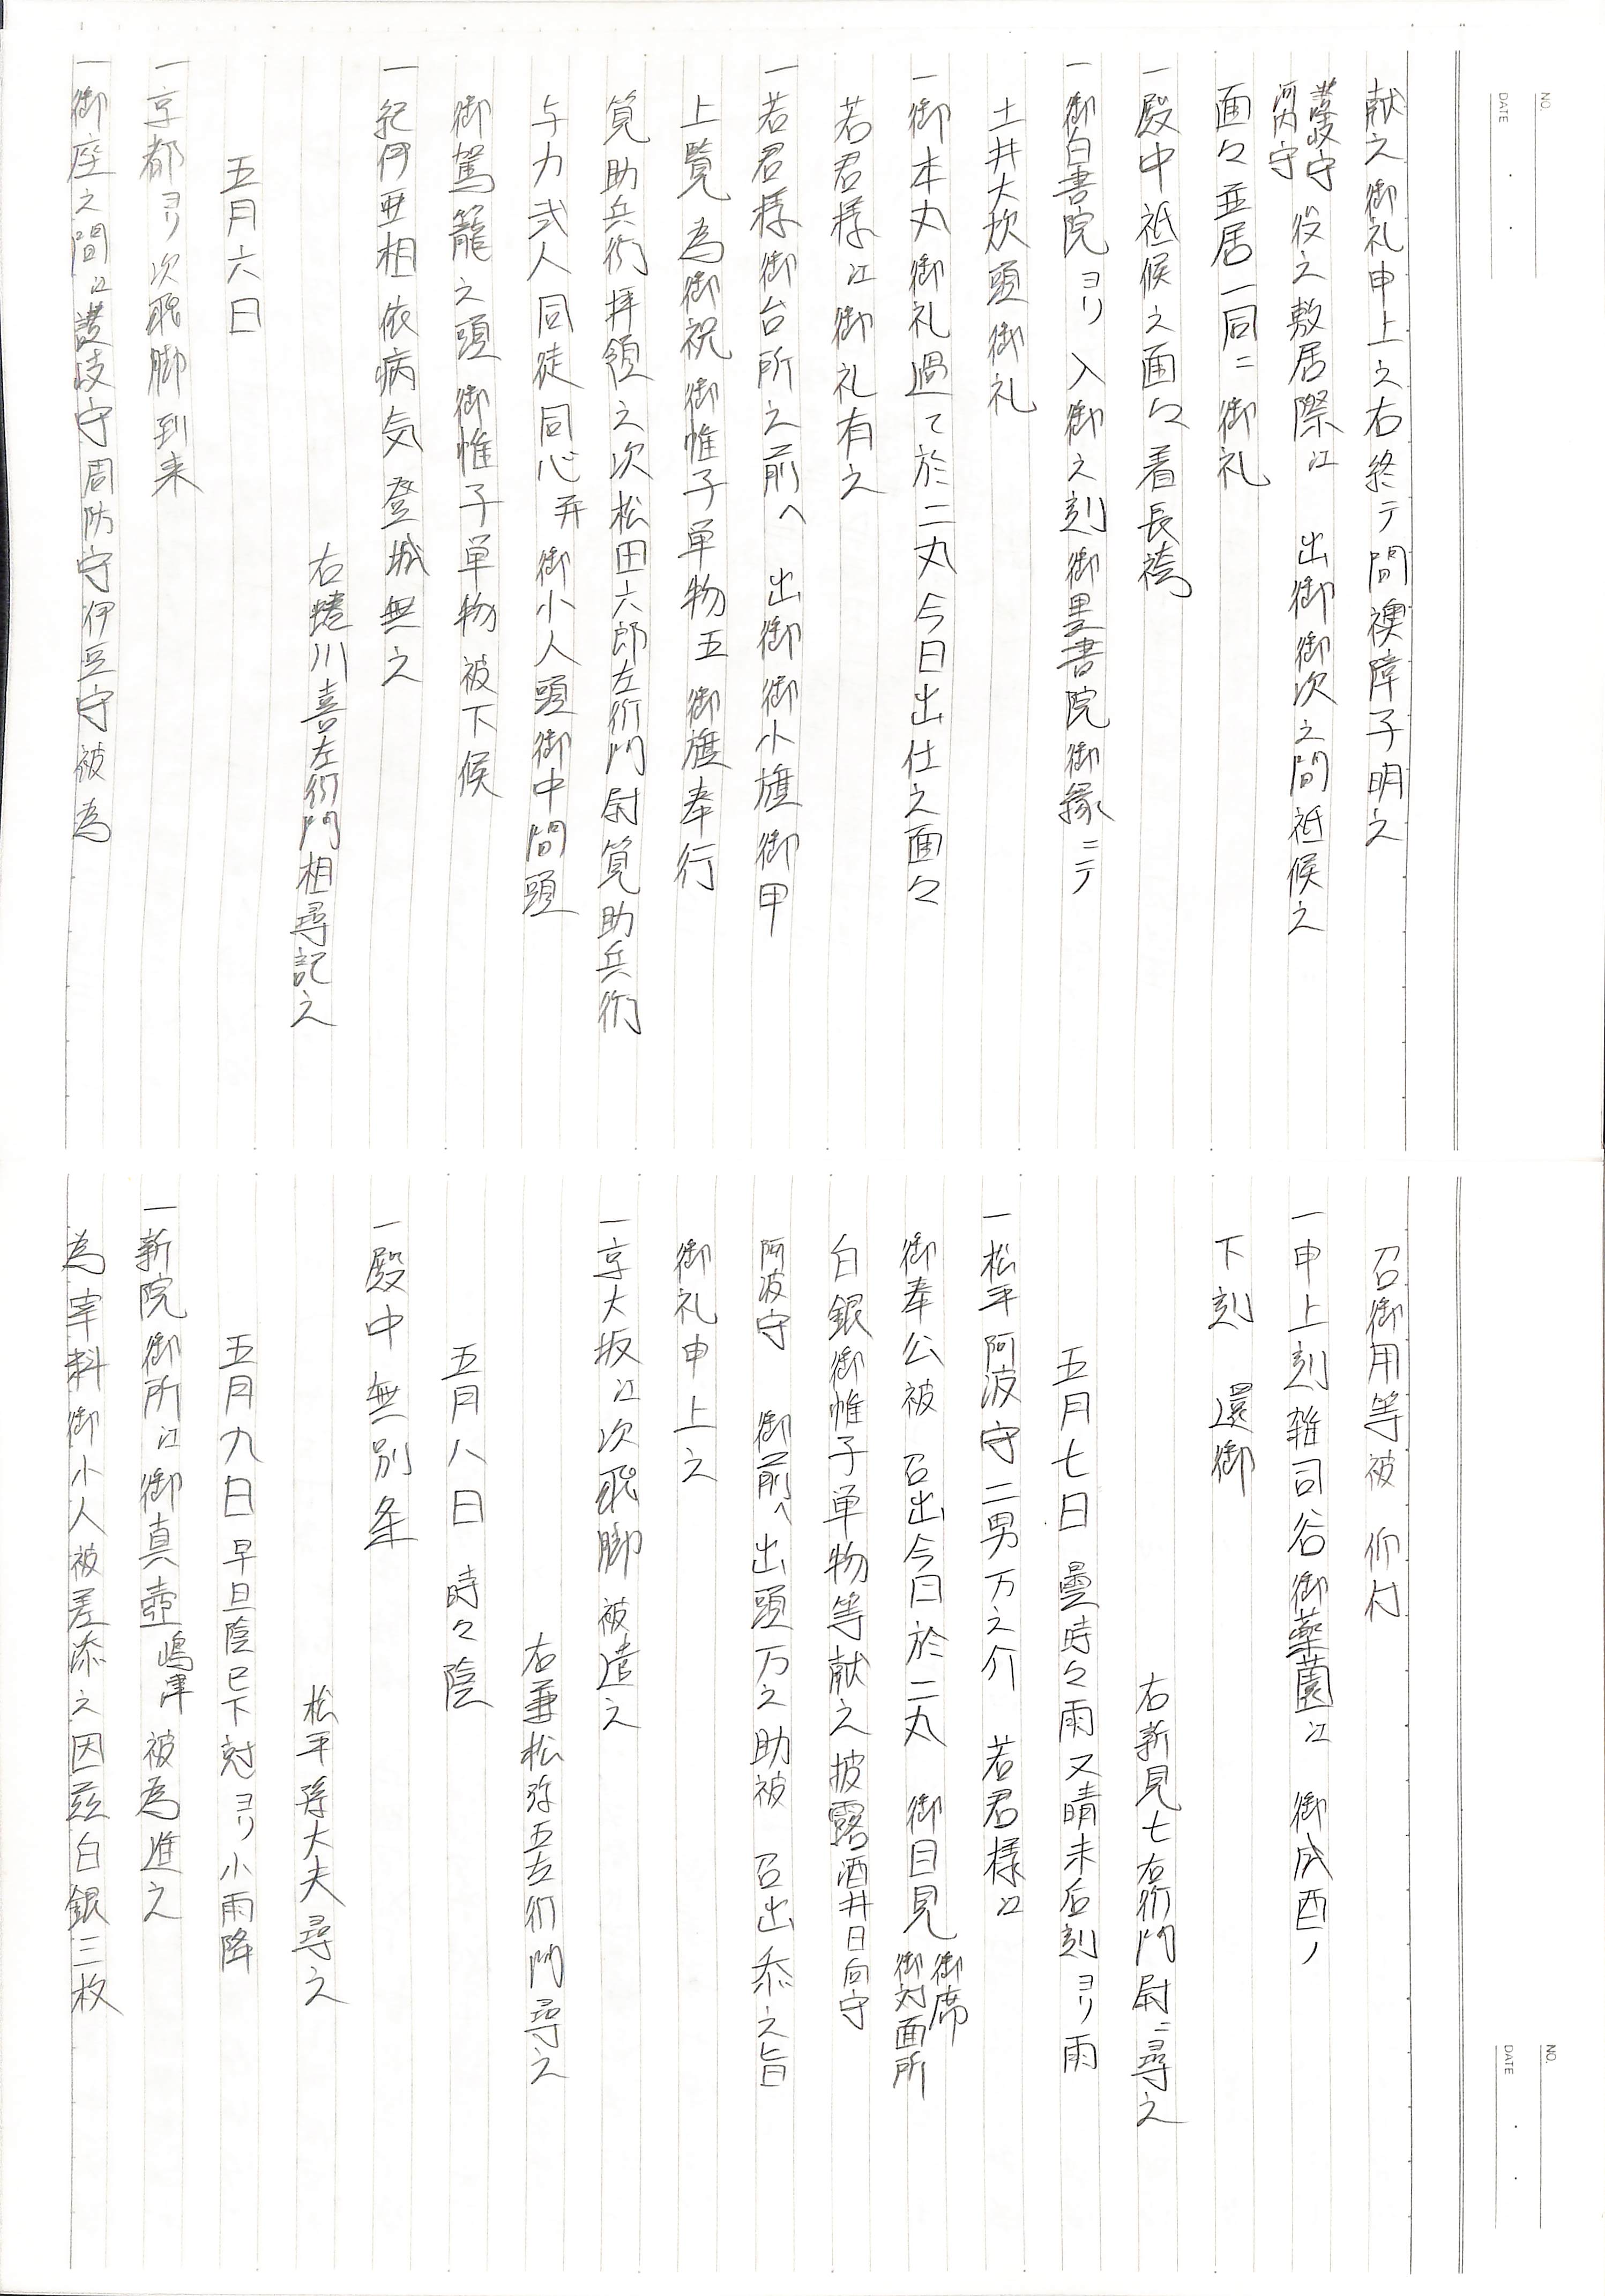 献之御礼申上之右終テ間襖障子明之
讃岐守
河内守
役之敷居際江　出御御次之間祗候之
面々並居一同ニ御礼
一殿中祗候之面々着長袴
一御白書院ヨリ入御之刻御黒書院御縁ニテ
土井大炊頭御礼
一御本丸御礼過て於二丸今日出仕之面々
若君様江御礼有之
一若君様御台所之前へ　出御御小旗御甲
上覧為御祝御帷子単物五　御旗奉行
筧助兵衛拝領之次松田六郎左衛門尉筧助兵衛
与力弐人同徒同心并御小人頭御中間頭
御駕籠之頭御帷子単物被下候
一紀伊亜相依病気登城無之
右蜷川喜左衛門相尋記之
五月六日
一京都ヨリ次飛脚到来
一御座之間江讃岐守周防守伊豆守被為
召御用等被　仰付
一申上刻雑司谷御薬園江　御成酉ノ
下刻　還御
右新見七右衛門尉ニ尋之
五月七日　曇時々雨又晴未后刻ヨリ雨
一松平阿波守二男万之介　若君様江
御奉公被　召出今日於二丸　御目見
御席
御対面所
白銀御帷子単物等献之披露酒井日向守
阿波守　御前へ出頭万之助被　召出忝之旨
御礼申上之
一京大坂江次飛脚被遣之
右兼松弥五左衛門尋之
五月八日　時々陰
一殿中無別条
松平孫大夫尋之
五月九日　早旦陰巳下刻ヨリ小雨降
一新院御所江御真壺
嶋津
被為進之
為宰料御小人被差添之因茲白銀三枚
NO.
DATE
NO.
DATE